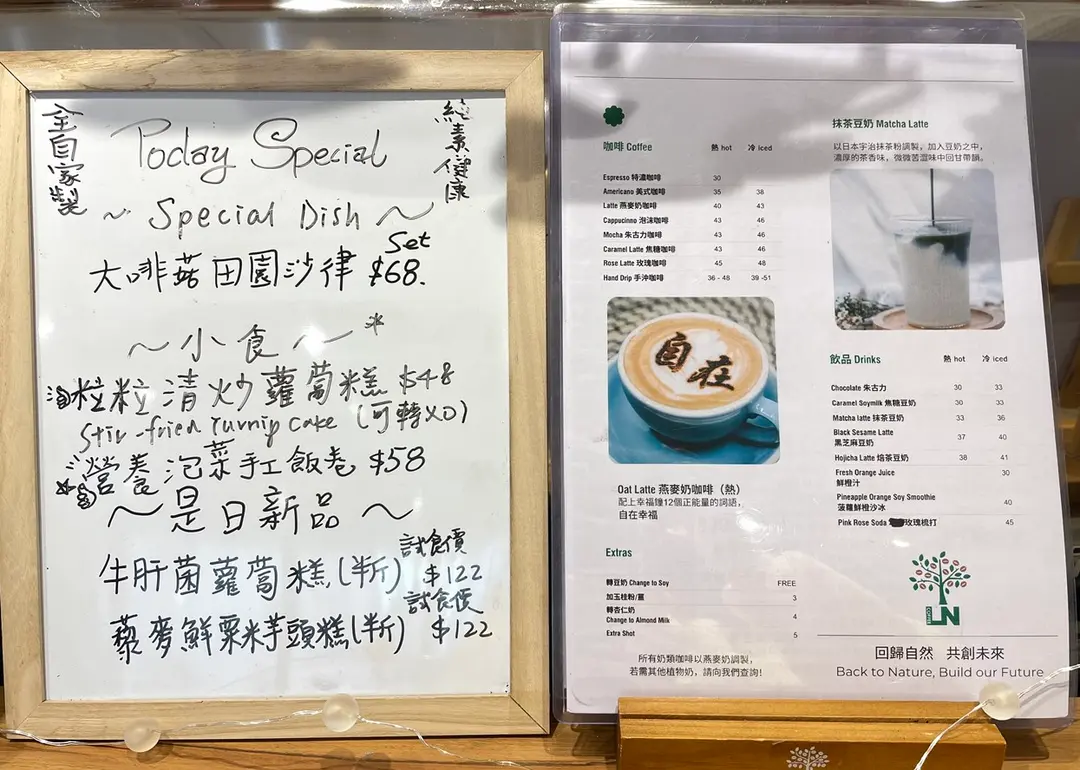 全自家製
純素健康
Today Special
~ Special Dish ~
大啡菇田園沙律 Set $68.
~ 小食 ~
粒粒清炒蘿蔔糕 $48
Stir-fried turnip cake (可轉XO)
營養泡菜手工飯卷 $58
~ 是日新品 ~
試食價
牛肝菌蘿蔔糕(半斤) $122
試食價
藜麥鮮粟米芋頭糕(半斤) $122
咖啡 Coffee 熱 hot 冷 iced
Espresso 特濃咖啡 30
Americano 美式咖啡 35 38
Latte 燕麥奶咖啡 40 43
Cappuccino 泡沫咖啡 43 46
Mocha 朱古力咖啡 43 46
Caramel Latte 焦糖咖啡 43 46
Rose Latte 玫瑰咖啡 45 48
Hand Drip 手沖咖啡 36 - 48 39 -51
自在
Oat Latte 燕麥奶咖啡（熱）
配上幸福鐘12個正能量的詞語，
自在幸福
Extras
轉豆奶 Change to Soy FREE
加玉桂粉/薑 3
轉杏仁奶
Change to Almond Milk 4
Extra Shot 5
所有奶類咖啡以燕麥奶調製，
若需其他植物奶，請向我們查詢!
抹茶豆奶 Matcha Latte
以日本宇治抹茶粉調製，加入豆奶之中，
濃厚的茶香味，微微苦澀味中回甘帶韻。
飲品 Drinks 熱 hot 冷 iced
Chocolate 朱古力 30 33
Caramel Soymilk 焦糖豆奶 30 33
Matcha latte 抹茶豆奶 33 36
Black Sesame Latte
黑芝麻豆奶 37 40
Hojicha Latte 焙茶豆奶 38 41
Fresh Orange Juice 30
鮮橙汁
Pineapple Orange Soy Smoothie
菠蘿鮮橙沙冰 40
Pink Rose Soda 玫瑰梳打 45
LN
COFFEE
回歸自然 共創未來
Back to Nature, Build our Future